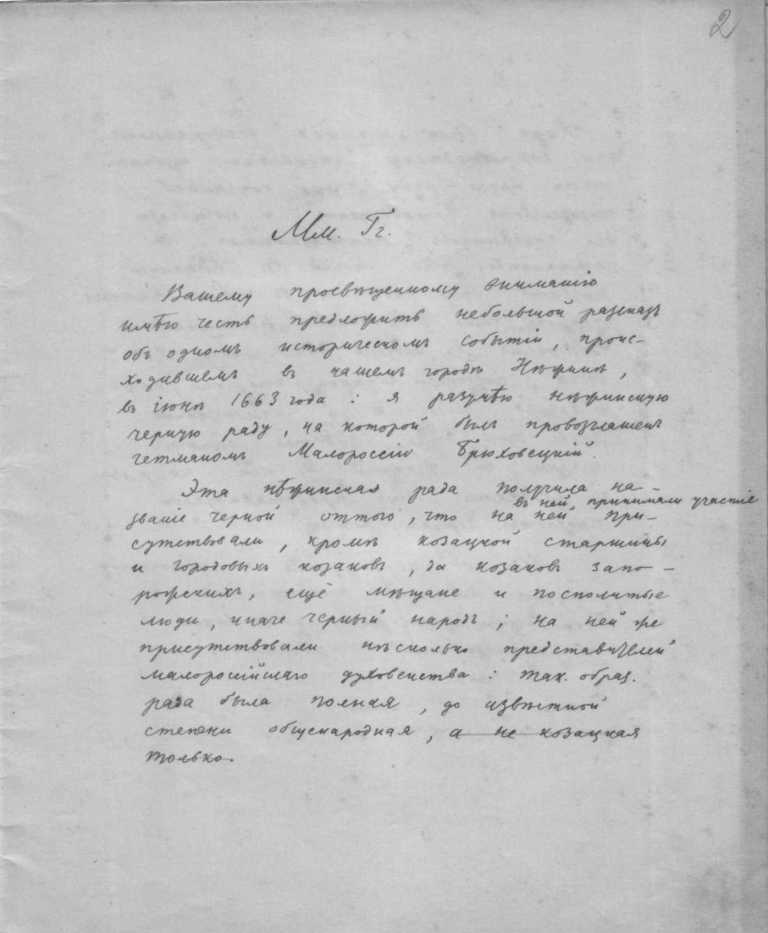 2
Мм. Гг.
Вашему просвѣщенному вниманію
имѣю честь предложить небольшой разсказъ
объ одномъ историческомъ событіи, проис-
ходившемъ въ нашемъ городѣ Нѣжинѣ,
въ іюнѣ 1663 года: я разумѣю нѣжинскую
черную раду, на которой былъ провозглашенъ
гетманомъ Малороссіи Брюховецкій.
Эта нѣжинская рада получила на-
въ ней принимали участіе
званіе черной оттого, что на ней при-
сутствовали, кромѣ козацкой старшины
и городовыхъ козаковъ, да козаковъ запо-
рожскихъ, ещё мѣщане и посполитые
люди, иначе черный народъ; на ней же
присутствовали нѣсколько представителей
малороссійскаго духовенства: так. образ.
рада была полная, до извѣстной
степени общенародная, а не козацкая
только.